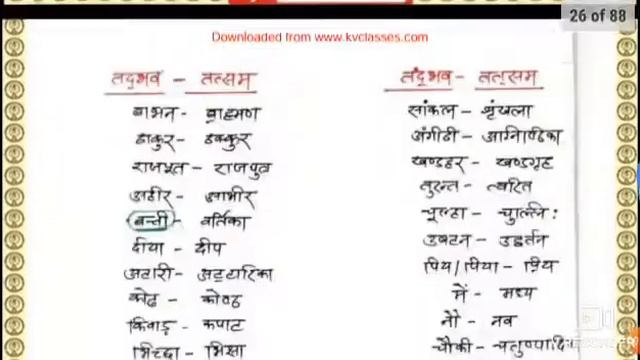 26 of 88
Downloaded from www.kvclasses.com
तद्भव - तत्सम
बाभन - ब्राह्मण
ठाकुर - ठक्कुर
राजपूत - राजपुत्र
अहीर - आभीर
बत्ती - वर्तिका
दीया - दीप
अटारी - अट्टालिका
कोढ़ - कोष्ठ
किवाड़ - कपाट
भिच्छा - भिक्षा
तद्भव - तत्सम
सांकल - श्रृंखला
अंगीठी - अग्निष्ठिका
खण्डहर - खण्डगृह
तुरन्त - त्वरित
चूल्हा - चुल्लि:
उबटन - उद्वर्तन
पिय/पिया - प्रिय
में - मध्य
नौ - नव
चौकी -